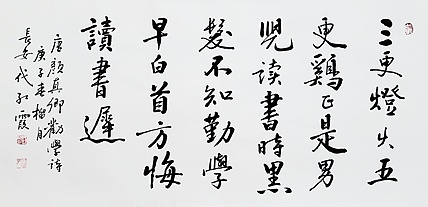 三更燈火五
更鷄正是男
児讀書時黑
髮不知勤學
早白首方悔
讀書遲
唐顏真卿勸學詩
庚子春梅月
長安代紅霞